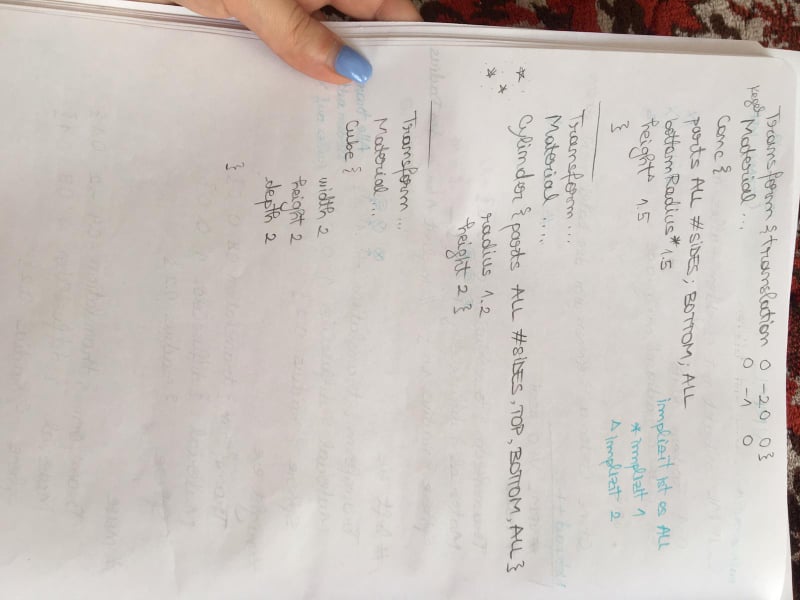 Transform {translation 0 -20 0}
Kegel Material ... 0 -1 0
Cone {
parts ALL #SIDES; BOTTOM; ALL
bottomRadius* 1.5
implizit ist es ALL
height△ 1.5
* implizit 1
△ implizit 2
}
Transform ...
Material ....
Cylinder { parts ALL #SIDES, TOP, BOTTOM, ALL }
radius 1.2
height 2 }
Transform ...
Material ...
Cube {
width 2
height 2
depth 2
}